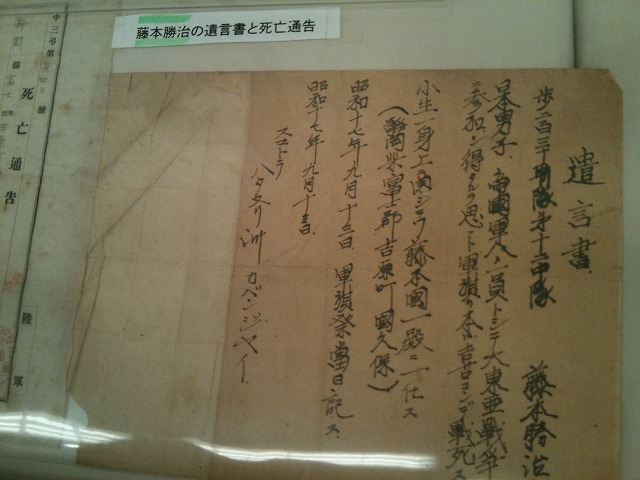 藤本勝治の遺言書と死亡通告
遺言書
歩二百三十聯隊第十一中隊 藤本勝治
日本男子帝國軍人ノ一員トシテ大東亜戦争
ニ参加シ得タルヲ思ト軍旗ノ本ニ喜コンデ戦死ス
小生一身上ニ関シテハ藤本國一殿ニ一任ス
(静岡県富士郡吉原町國久保)
昭和十七年九月十三日 軍旗祭當日記ス
昭和十七年九月十三日
スマトラ
州 カベンジャヘイ
中三弔第 號
死亡通告
陸軍